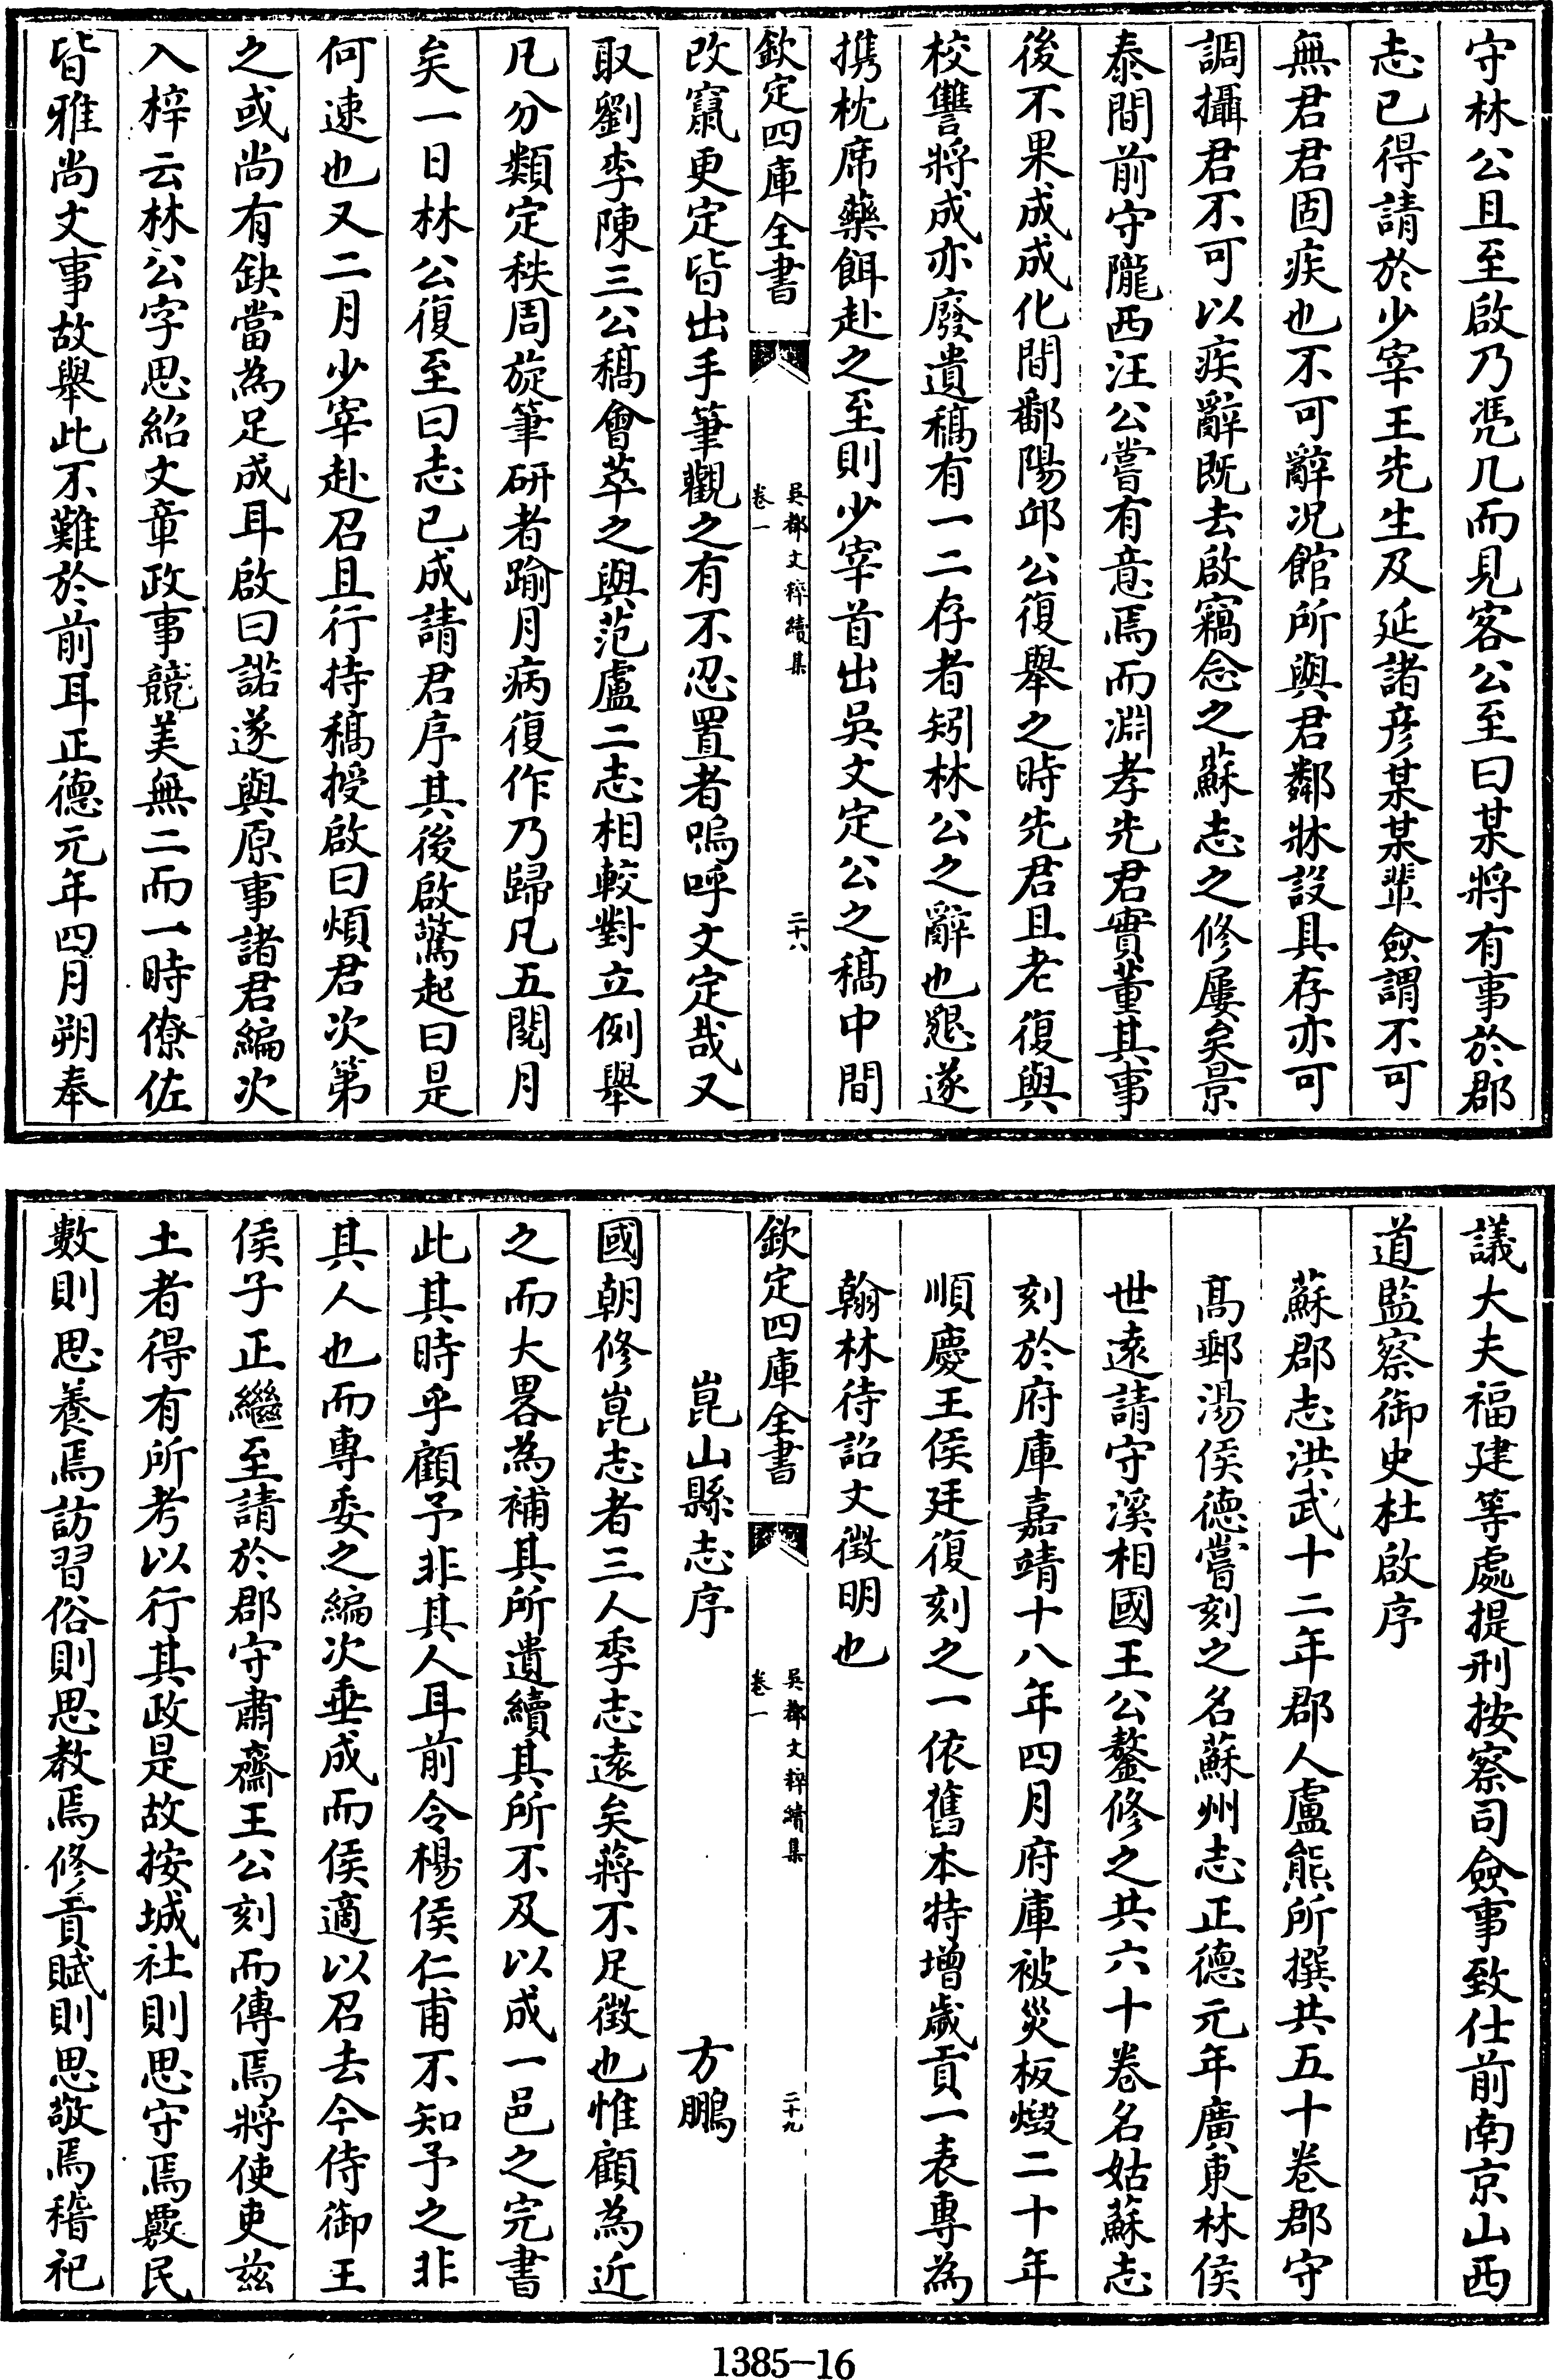 守林公且至啟乃凭几而見客公至曰某將有事於郡
志已得請於少宰王先生及延諸彦某某軰僉謂不可
無君君固疾也不可辭况館所與君鄰牀設具存亦可
調攝君不可以疾辭既去啟竊念之蘇志之修屢矣景
泰間前守隴西汪公嘗有意焉而淵孝先君實董其事
後不果成成化間鄱陽邱公復舉之時先君且老復與
校讐將成亦廢遺稿有一二存者矧林公之辭也懇遂
携枕席藥餌赴之至則少宰首出吳文定公之稿中間
欽定四庫全書
吳都文粹續集
卷一
二十八
改竄更定皆出手筆觀之有不忍置者嗚呼文定哉又
取劉李陳三公稿會萃之與范盧二志相較對立例舉
凡分類定秩周旋筆研者踰月病復作乃歸凡五閱月
矣一日林公復至曰志已成請君序其後啟驚起曰是
何速也又二月少宰赴召且行持稿授啟曰煩君次第
之或尚有缺當為足成耳啟曰諾遂與原事諸君編次
入梓云林公字思紹文章政事競美無二而一時僚佐
皆雅尚文事故舉此不難於前耳正德元年四月朔奉
議大夫福建等處提刑按察司僉事致仕前南京山西
道監察御史杜啟序
蘇郡志洪武十二年郡人盧熊所撰共五十卷郡守
髙郵湯侯德嘗刻之名蘇州志正德元年廣東林侯
世遠請守溪相國王公鏊修之共六十卷名姑蘇志
刻於府庫嘉靖十八年四月府庫被災板燬二十年
順慶王侯廷復刻之一依舊本特增歲貢一表專為
翰林待詔文徵明也
欽定四庫全書
吳都文粹續集
卷一
二十九
崑山縣志序
方鵬
國朝修崑志者三人季志遠矣蔣不足徴也惟顧為近
之而大畧為補其所遺續其所不及以成一邑之完書
此其時乎顧予非其人耳前令楊侯仁甫不知予之非
其人也而専委之編次垂成而侯適以召去今侍御王
侯子正繼至請於郡守肅齋王公刻而傳焉將使吏兹
土者得有所考以行其政是故按城社則思守焉覈民
數則思養焉訪習俗則思教焉修貢賦則思敬焉稽祀
1385-16